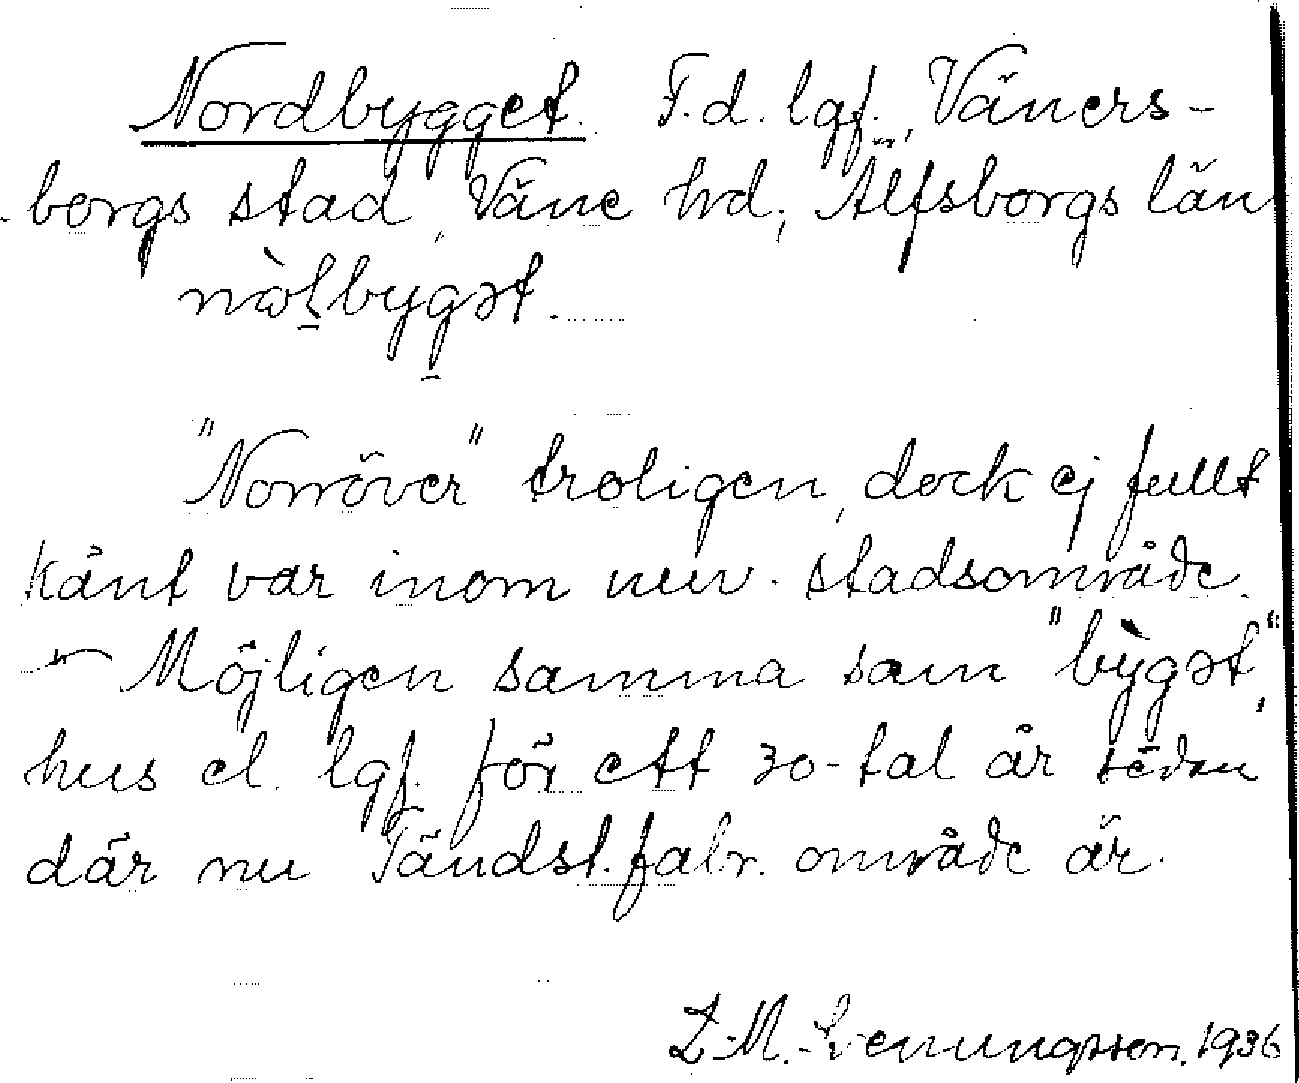 Nordbygget. F.d. lgf., Väners-
borgs stad, Väne hd, Älfsborgs län
nòɫ̠byg̠ət.
"Norröver" troligen, dock ej fullt
känt var inom nuv. stadsområde.
- Möjligen samma som "bỳgət",
hus el. lgf. för ett 30-tal år sedan
där nu Tändst.fabr. område är.
1936